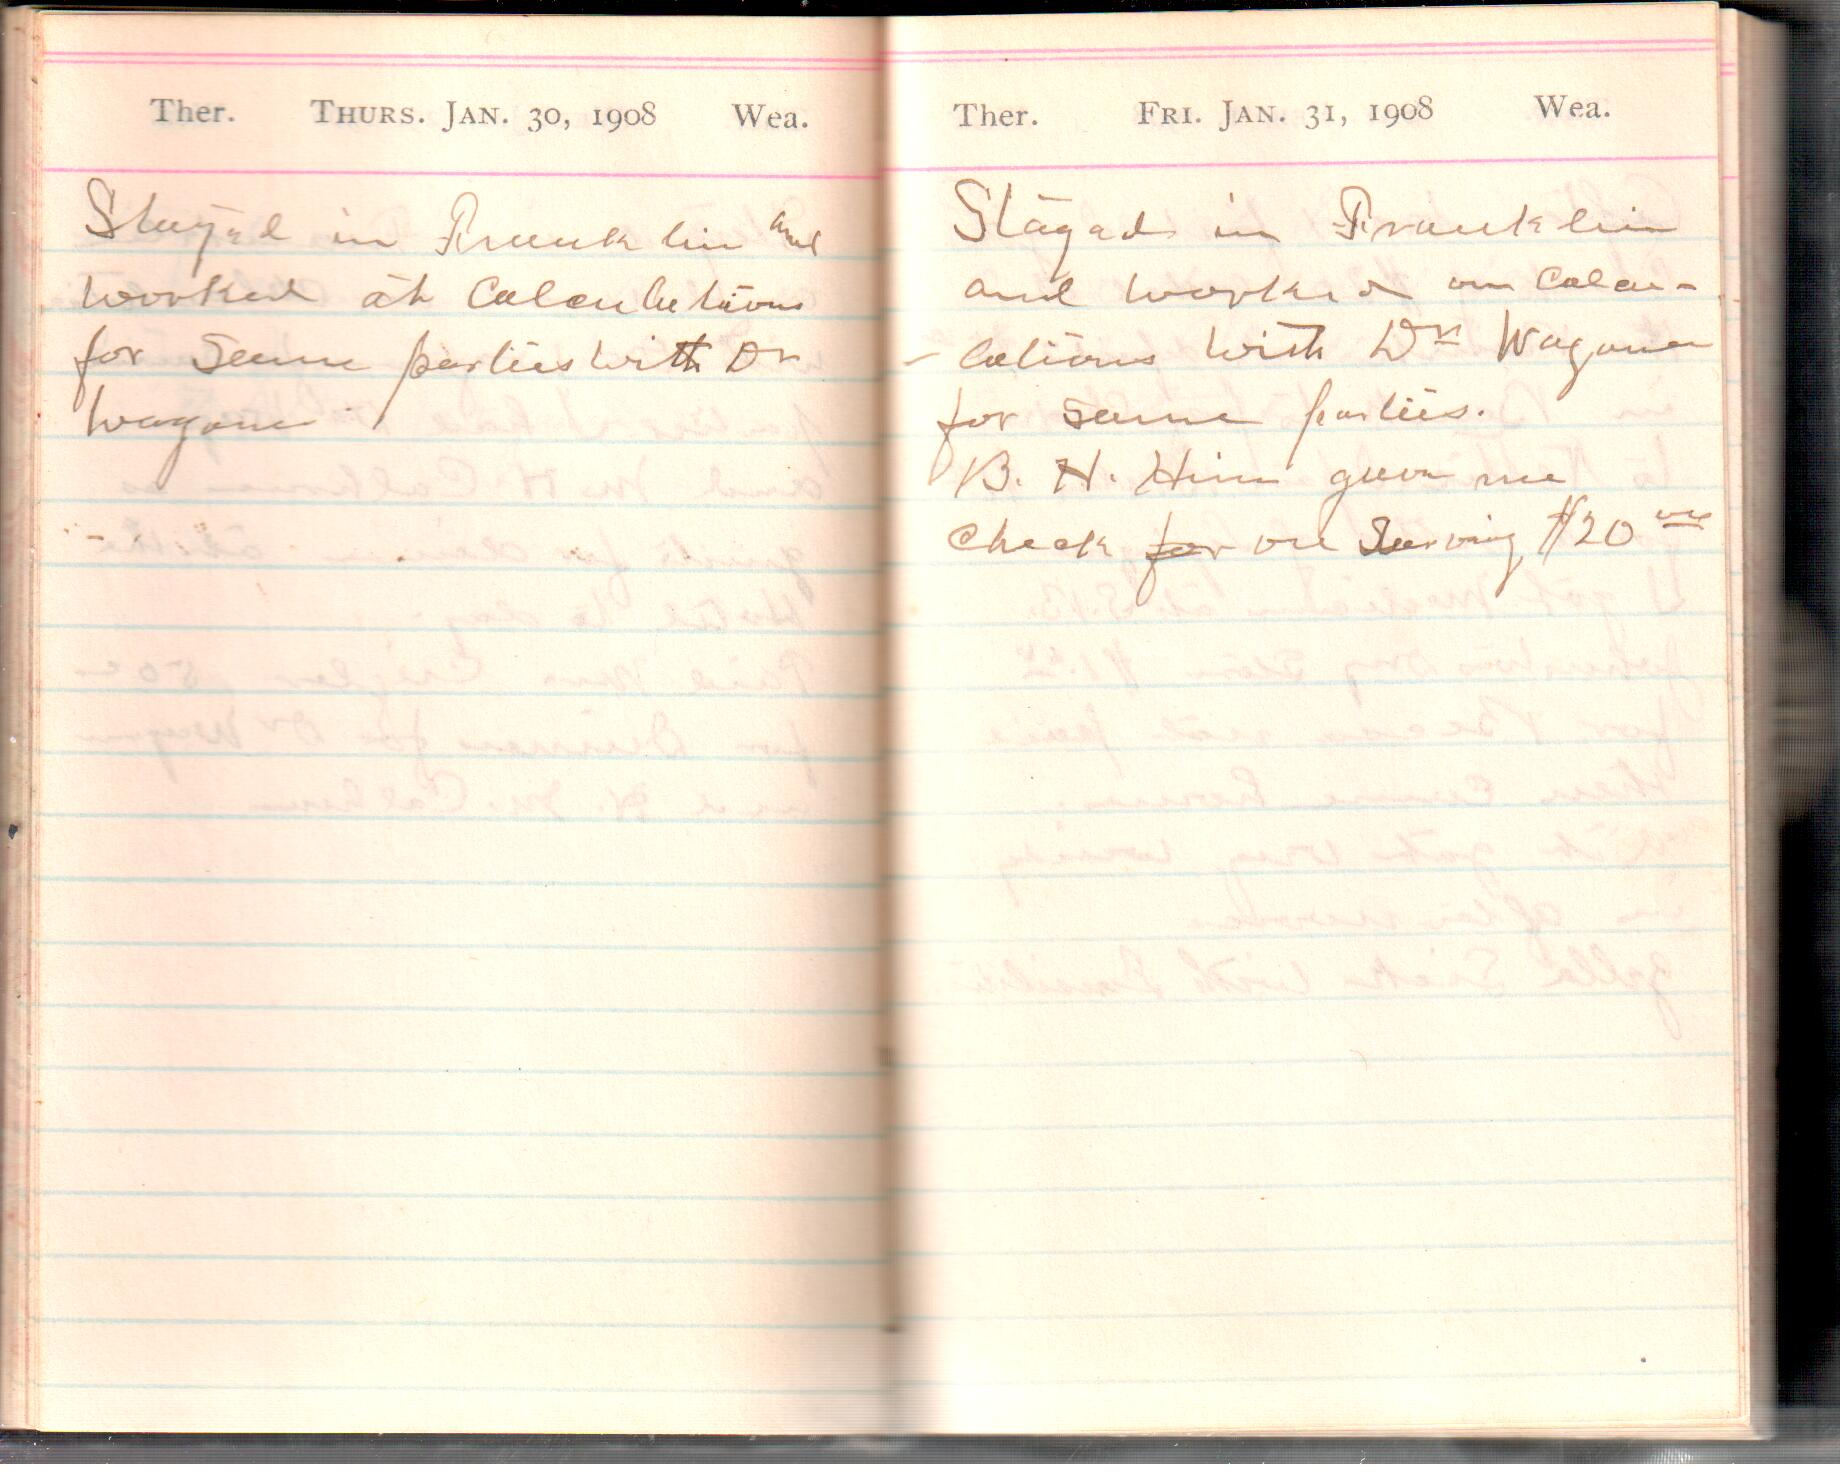 Ther. THURS. JAN. 30, 1908 Wea.
Stayed in Franklin and
worked at Calculations
for Same parties with Dr
Wagoner
Ther. FRI. JAN. 31, 1908 Wea.
Stayed in Franklin
and worked on Calcu-
-lations with Dr Wagoner
for Same parties.
B. H. gave me
Check for on $20